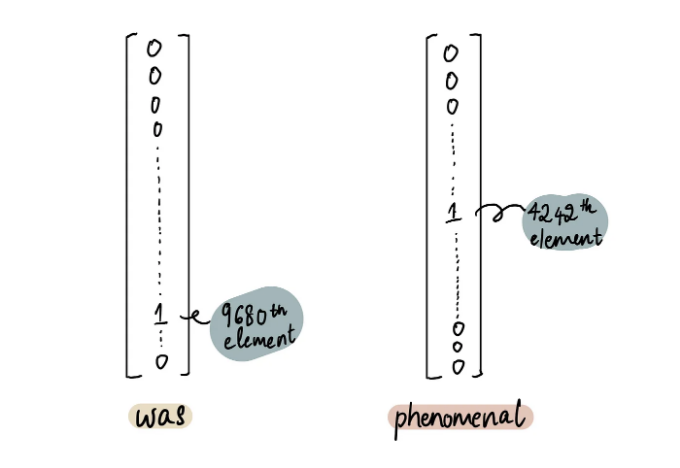 0
0
0
0
1
0
9680th
element
was
0
0
0
1
0
0
0
4242th
element
phenomenal